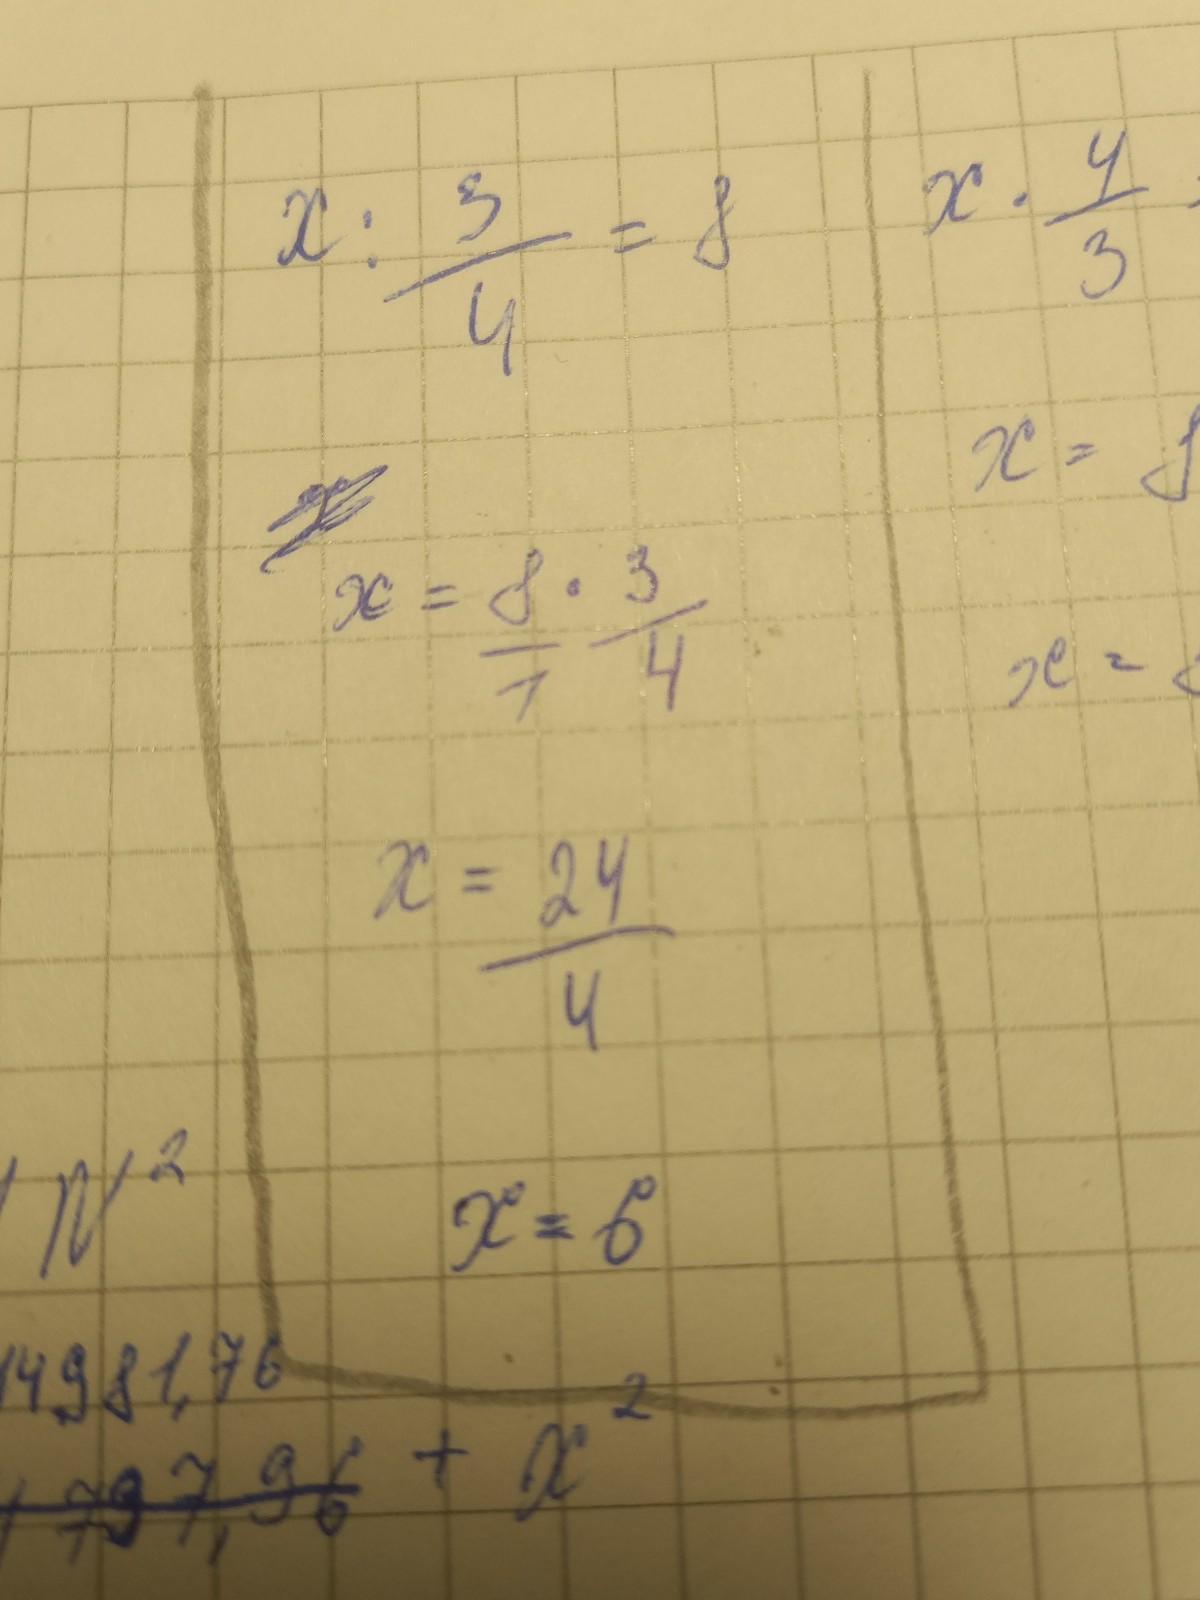 x : 3/4 = 8
x = 8/1 · 3/4
x = 24/4
x = 6
x · 4/3
x = 8
x =
N²
14981,76
+ x²